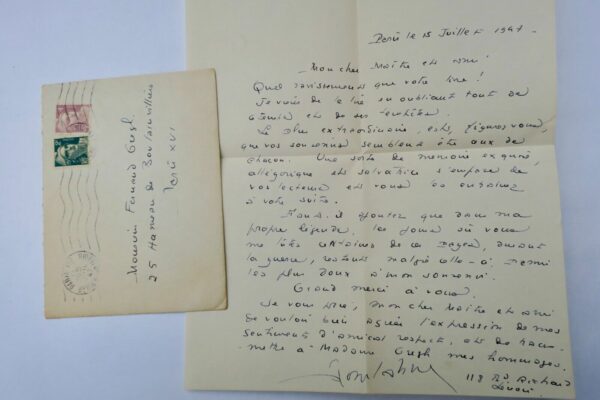 Paris le 15 Juillet 1947.
Mon cher Maître et ami
Quel ravissement que votre livre !
Je viens de le lire en oubliant tout de
et de ses
Le plus extraordinaire, est, figurez-vous,
que vos souvenirs semblent être aux de
chacun. Une sorte de mémoire exquise,
allégorique et salvatrice s'empare de
vos lecteurs et vous les entraînez
à votre suite.
ajouter que dans ma
propre légende, les jours où vous
me lûtes certaines de ces pages, durant
la guerre, restent malgré elle - parmi
les plus doux à mon souvenir.
Grand merci à vous.
Je vous prie, mon cher Maître et ami
de vouloir bien agréer l'expression de mes
sentiments d'amical respect, et de trans-
mettre à Madame Gregh mes hommages.
118 Bd Richard
Lenoir
Monsieur Fernand Gregh.
25 Hameau de Boulainvilliers
Paris XVI